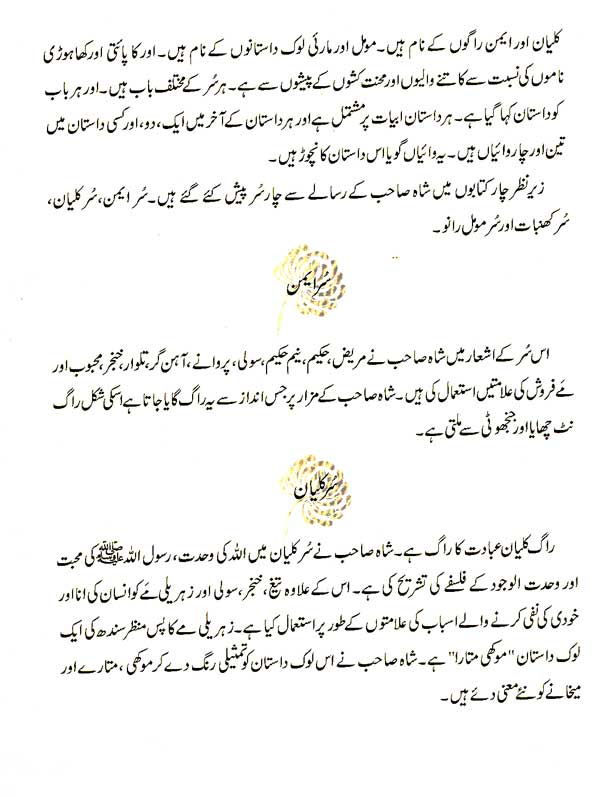 کلیان اور ایمن راگوں کے نام ہیں۔ مومل اور مارئی لوک داستانوں کے نام ہیں۔ اور کاپائتی اور کھاہوڑی
ناموں کی نسبت سے کاتنے والیوں اور محنت کشوں کے پیشوں سے ہے۔ ہر سُر کے مختلف باب ہیں۔ اور ہر باب
کو داستان کہا گیا ہے۔ ہر داستان ابیات پر مشتمل ہے اور ہر داستان کے آخر میں ایک، دو، اور کسی داستان میں
تین اور چار وائیاں ہیں۔ یہ وائیاں گویا اس داستان کا نچوڑ ہیں۔
زیرِ نظر چار کتابوں میں شاہ صاحب کے رسالے سے چار سُر پیش کئے گئے ہیں۔ سُر ایمن، سُر کلیان،
سُر کھنبات اور سُر مومل رانو۔
سُر ایمن
اس سُر کے اشعار میں شاہ صاحب نے مریض، حکیم، نیم حکیم، سولی، پروانے، آہن گر، تلوار، خنجر، محبوب اور
مۓ فروش کی علامتیں استعمال کی ہیں۔ شاہ صاحب کے مزار پر جس انداز سے یہ راگ گایا جاتا ہے اسکی شکل راگ
نٹ چھایا اور جنجھوٹی سے ملتی ہے۔
سُر کلیان
راگ کلیان عبادت کا راگ ہے۔ شاہ صاحب نے سُر کلیان میں اللہ کی وحدت، رسول اللہ ﷺ کی محبت
اور وحدت الوجود کے فلسفے کی تشریح کی ہے۔ اس کے علاوہ تیغ، خنجر، سولی اور زہریلی مۓ کو انسان کی انا اور
خودی کی نفی کرنے والے اسباب کی علامتوں کے طور پر استعمال کیا ہے۔ زہریلی مے کا پس منظر سندھ کی ایک
لوک داستان "موکھی متارا" ہے۔ شاہ صاحب نے اس لوک داستان کو تمثیلی رنگ دے کر موکھی، متارے اور
میخانے کو نئے معنی دئے ہیں۔